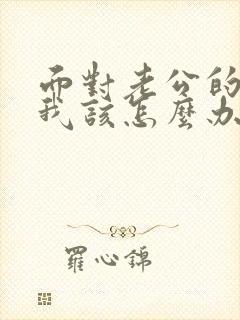 而對老公的
我該怎麼办
羅心錦